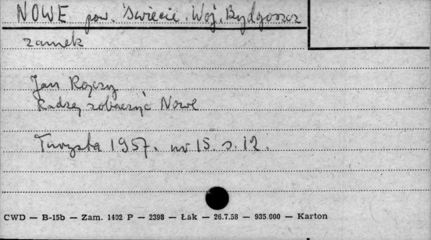 NOWE pow. Świecie. Woj. Bydgoszcz
zamek
Jan Rojczy
Radzę zobaczyć Nowe
Turysta 1957. nr 15. s. 12.
CWD — B-15b — Zam. 1402 P — 2398 — Łak — 26.7.58 — 935.000 — Karton